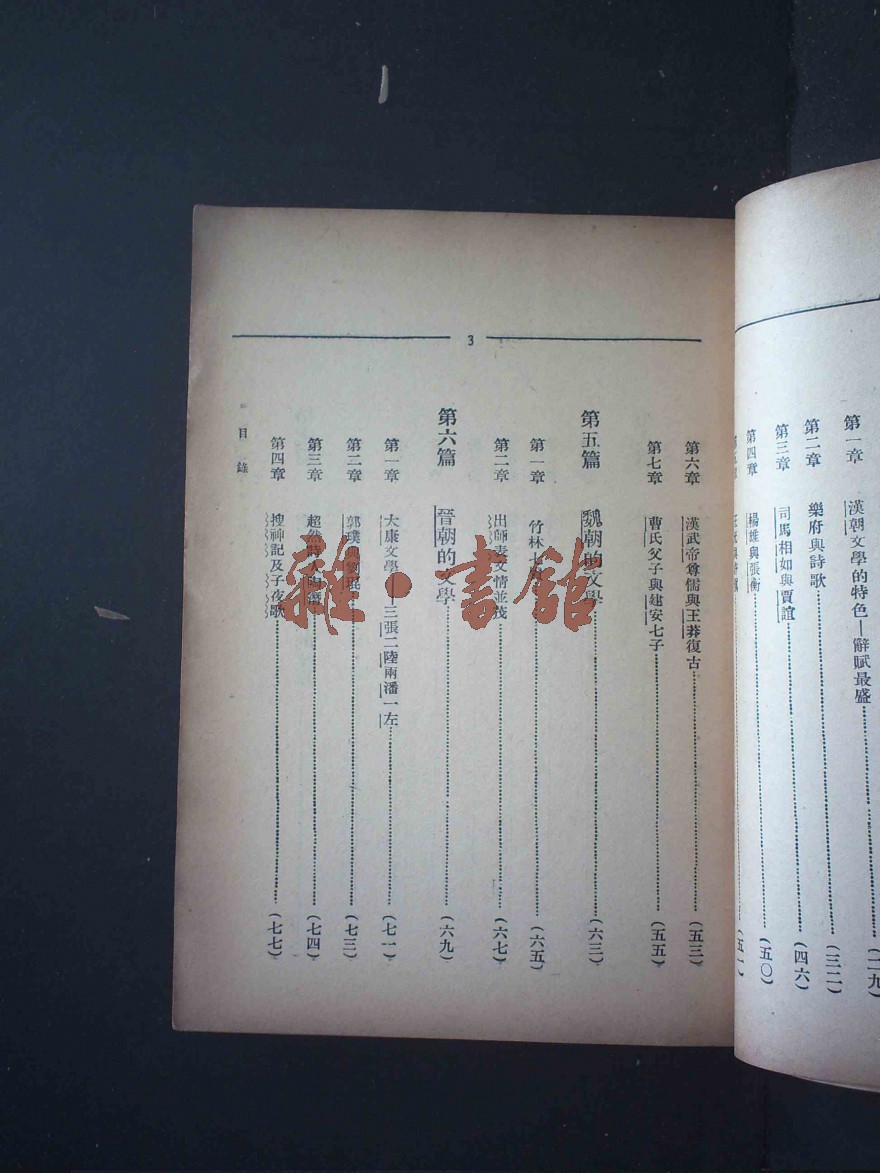 第一章　漢朝文學的特色—辭賦最盛……(二九)
第二章　樂府與詩歌……(三二)
第三章　司馬相如與賈誼……(四六)
第四章　楊雄與張衡……(五〇)
(五一)
3
第六章　漢武帝尊儒與王莽復古……(五三)
第七章　曹氏父子與建安七子……(五五)
第五篇　魏朝的文學……(六三)
第一章　竹林七……(六五)
第二章　出師表文情並茂……(六七)
第六篇　晉朝的文學……(六九)
第一章　大康文學—三張二陸兩潘一左……(七一)
第二章　郭璞與劉琨……(七三)
第三章　超然詩人陶潛……(七四)
第四章　搜神記及子夜歌……(七七)
目錄
雜·書館